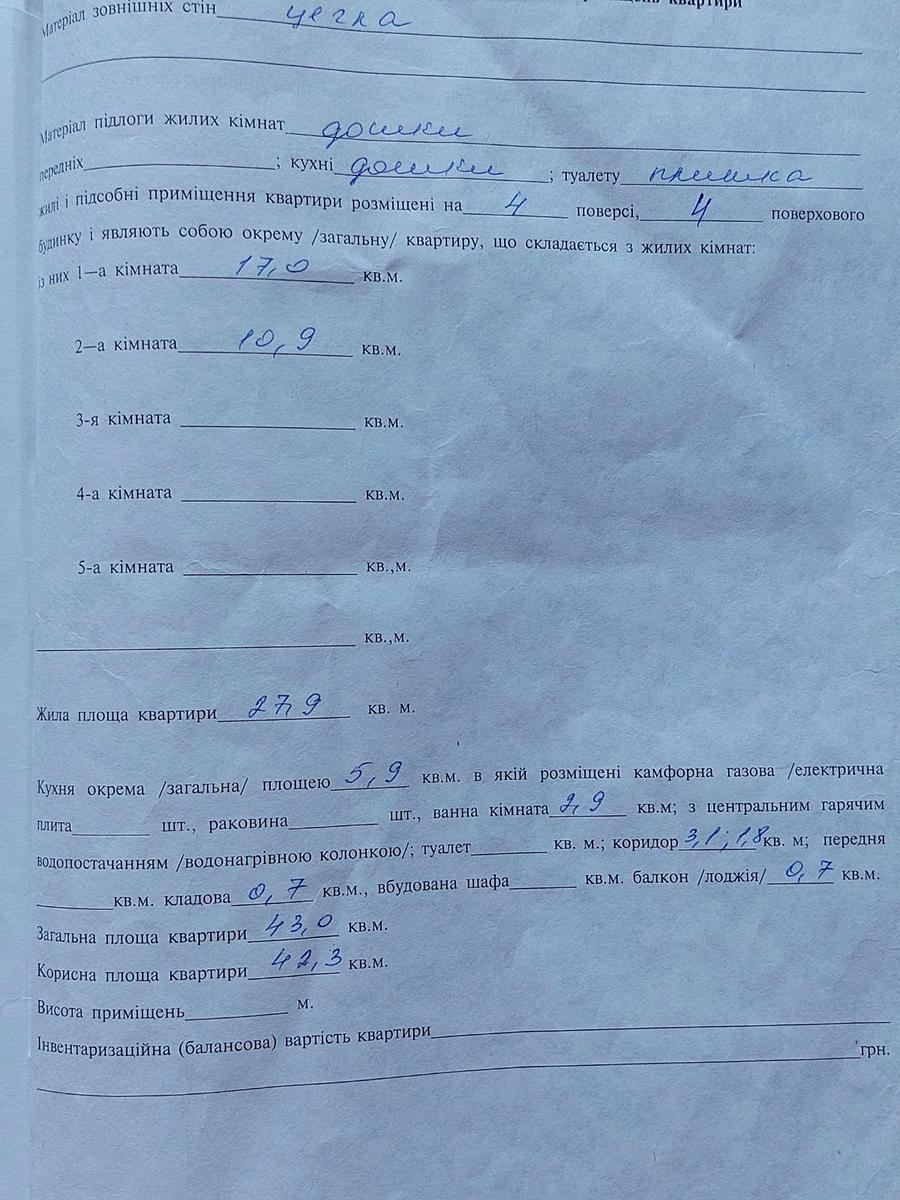 квартири
Матеріал зовнішніх стін цегла
Матеріал підлоги жилих кімнат дошки
передніх ; кухні дошки ; туалету плитка
жилі і підсобні приміщення квартири розміщені на 4 поверсі, 4 поверхового
будинку і являють собою окрему /загальну/ квартиру, що складається з жилих кімнат:
із них 1—а кімната 17,0 кв.м.
2—а кімната 10,9 кв.м.
3-я кімната кв.м.
4-а кімната кв.м.
5-а кімната кв.,м.
кв.,м.
Жила площа квартири 27,9 кв. м.
Кухня окрема /загальна/ площею 5,9 кв.м. в якій розміщені камфорна газова /електрична
плита шт., раковина шт., ванна кімната 2,9 кв.м; з центральним гарячим
водопостачанням /водонагрівною колонкою/; туалет кв. м.; коридор 3,1; 1,8 кв. м; передня
кв.м. кладова 0,7 кв.м., вбудована шафа кв.м. балкон /лоджія/ 0,7 кв.м.
Загальна площа квартири 43,0 кв.м.
Корисна площа квартири 42,3 кв.м.
Висота приміщень м.
Інвентаризаційна (балансова) вартість квартири
грн.